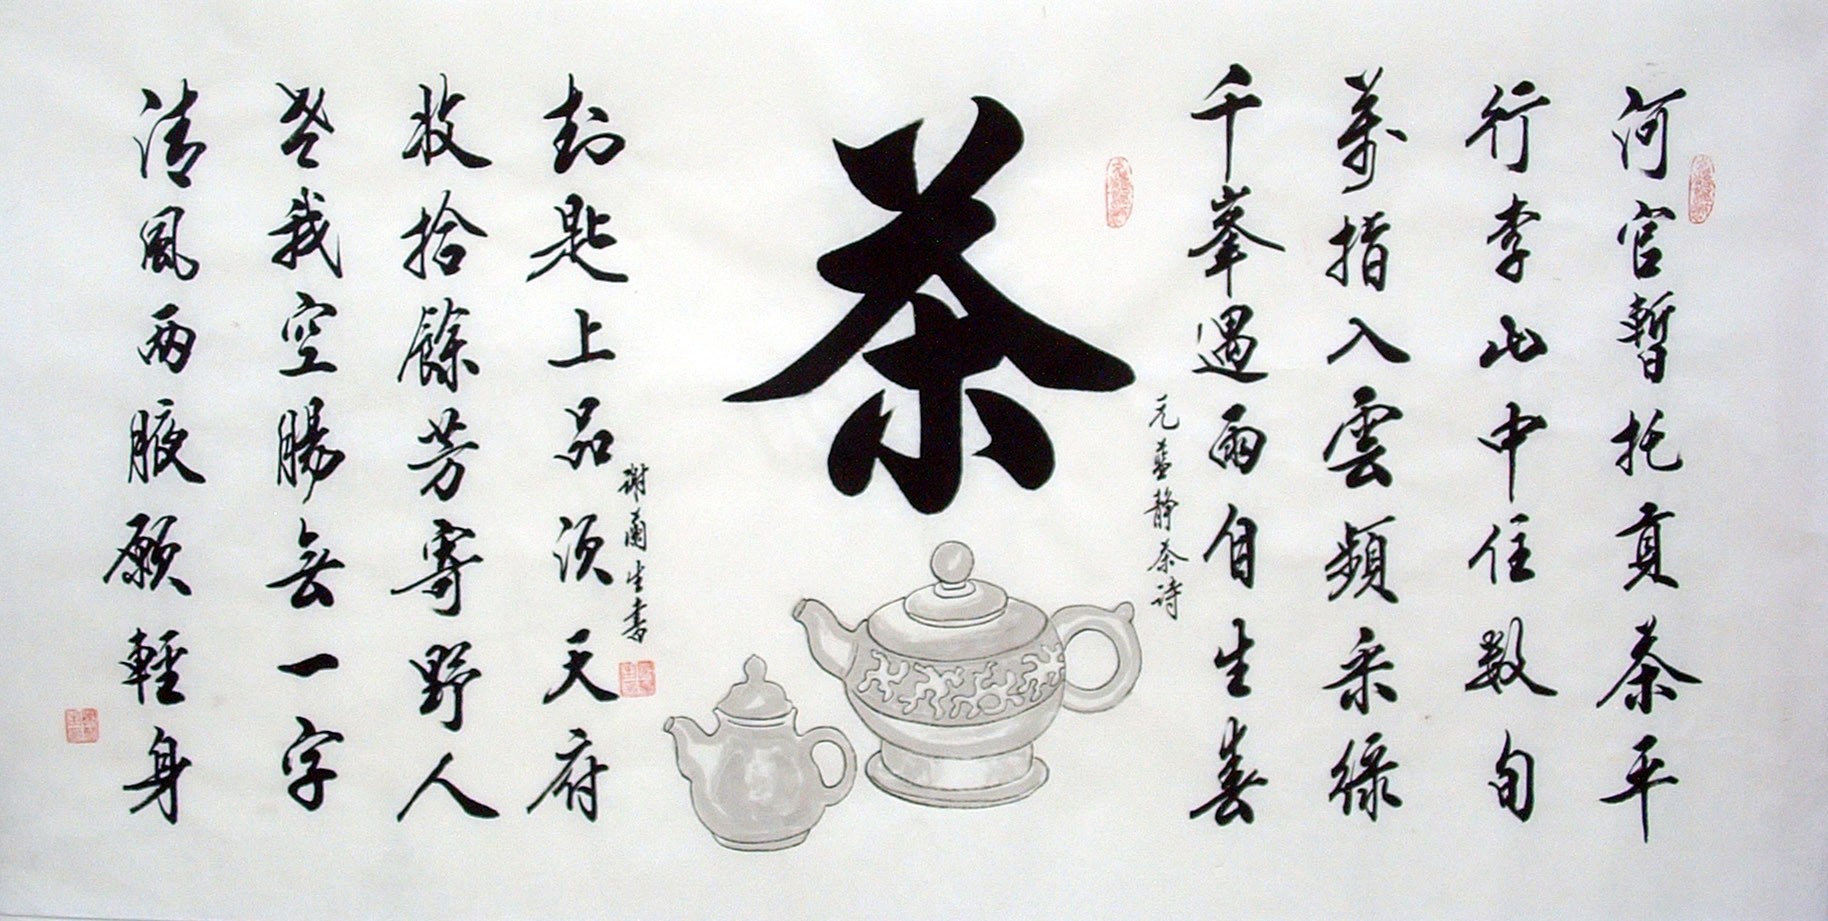 河官暫托貢茶平
行李山中住数旬
萬指入雲頻采绿
千峯過雨自生春
元蓝静茶诗
茶
封匙上品须天府
謝蘭生書
收拾餘芳寄野人
老我空腸無一字
清風兩腋願輕身